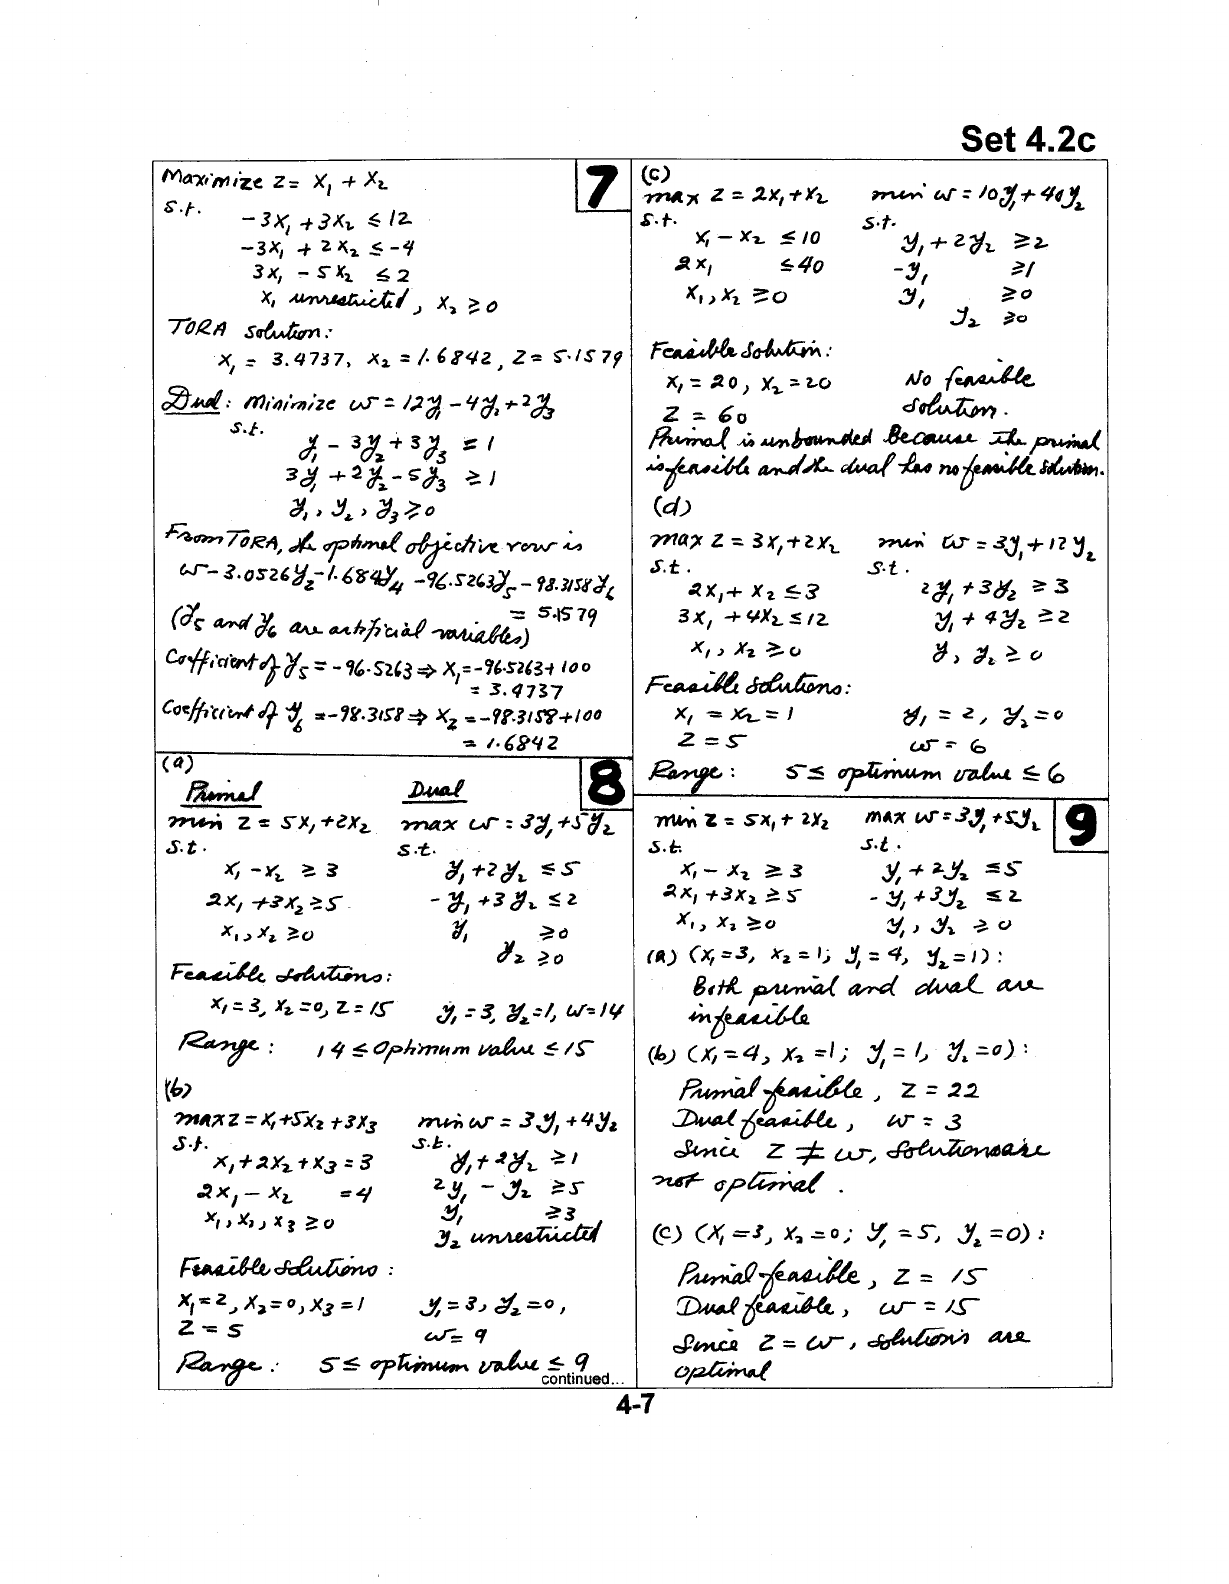 Set 4.2c
7
Maximize Z = X₁ + X₂
S.t.
-3X₁ + 3X₂ ≤ 12
-3X₁ + 2X₂ ≤ -4
3X₁ - 5X₂ ≤ 2
X₁ unrestricted, X₂ ≥ 0
TORA solution:
X₁ = 3.4737, X₂ = 1.6842, Z = 5.1579
Dual: Minimize w = 12y₁ - 4y₂ + 2y₃
S.t.
y₁ - 3y₂ + 3y₃ = 1
3y₁ + 2y₂ - 5y₃ ≥ 1
y₁, y₂, y₃ ≥ 0
From TORA, the optimal objective row is
w - 3.0526y₂ - 1.6842y₄ - 96.5263y₅ - 98.3158y₆
= 5.1579
(y₅ and y₆ are artificial variables)
Coefficient of y₅ = -96.5263 ⇒ X₁ = -96.5263 + 100
= 3.4737
Coefficient of y₆ = -98.3158 ⇒ X₂ = -98.3158 + 100
= 1.6842
8
(a)
Primal Dual
min Z = 5X₁ + 2X₂ max w = 3y₁ + 5y₂
S.t. S.t.
X₁ - X₂ ≥ 3 y₁ + 2y₂ ≤ 5
2X₁ + 3X₂ ≥ 5 -y₁ + 3y₂ ≤ 2
X₁, X₂ ≥ 0 y₁ ≥ 0
y₂ ≥ 0
Feasible solutions:
X₁ = 3, X₂ = 0, Z = 15 y₁ = 3, y₂ = 1, w = 14
Range: 14 ≤ Optimum value ≤ 15
(b)
max Z = X₁ + 5X₂ + 3X₃ min w = 3y₁ + 4y₂
S.t. S.t.
X₁ + 2X₂ + X₃ = 3 y₁ + 2y₂ ≥ 1
2X₁ - X₂ = 4 2y₁ - y₂ ≥ 5
X₁, X₂, X₃ ≥ 0 y₁ ≥ 3
y₂ unrestricted
Feasible Solutions:
X₁ = 2, X₂ = 0, X₃ = 1 y₁ = 3, y₂ = 0,
Z = 5 w = 9
Range: 5 ≤ optimum value ≤ 9
continued...
(c)
max Z = 2X₁ + X₂ min w = 10y₁ + 40y₂
S.t. S.t.
X₁ - X₂ ≤ 10 y₁ + 2y₂ ≥ 2
2X₁ ≤ 40 -y₁ ≥ 1
X₁, X₂ ≥ 0 y₁ ≥ 0
y₂ ≥ 0
Feasible Solution:
X₁ = 20, X₂ = 20 No feasible
Z = 60 solution.
Primal is unbounded Because the primal
is feasible and the dual has no feasible solution.
(d)
max Z = 3X₁ + 2X₂ min w = 3y₁ + 12y₂
S.t. S.t.
2X₁ + X₂ ≤ 3 2y₁ + 3y₂ ≥ 3
3X₁ + 4X₂ ≤ 12 y₁ + 4y₂ ≥ 2
X₁, X₂ ≥ 0 y₁, y₂ ≥ 0
Feasible Solutions:
X₁ = X₂ = 1 y₁ = 2, y₂ = 0
Z = 5 w = 6
Range: 5 ≤ optimum value ≤ 6
9
min Z = 5X₁ + 2X₂ max w = 3y₁ + 5y₂
S.t. S.t.
X₁ - X₂ ≥ 3 y₁ + 2y₂ ≤ 5
2X₁ + 3X₂ ≥ 5 -y₁ + 3y₂ ≤ 2
X₁, X₂ ≥ 0 y₁, y₂ ≥ 0
(a) (X₁ = 3, X₂ = 1; y₁ = 4, y₂ = 1):
Both primal and dual are
infeasible
(b) (X₁ = 4, X₂ = 1; y₁ = 1, y₂ = 0):
Primal feasible, Z = 22
Dual feasible, w = 3
Since Z ≠ w, solutions are
not optimal.
(c) (X₁ = 3, X₂ = 0; y₁ = 5, y₂ = 0):
Primal feasible, Z = 15
Dual feasible, w = 15
Since Z = w, solutions are
optimal
4-7